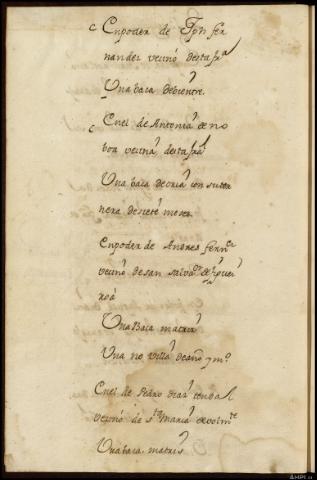 En poder de Jph fer
nandez vecino desta fra
Una baca de bientre.
En el de Antonia de no
boa vecina desta fra
Una baca de cria con su ter
nera de siete meses
En poder de Andres fernz
vecino de san salvor de
Una Baca matriz
Una novilla de año y mo
En el de Pedro
vecino de sta Maria
Una baca matris
AHPL